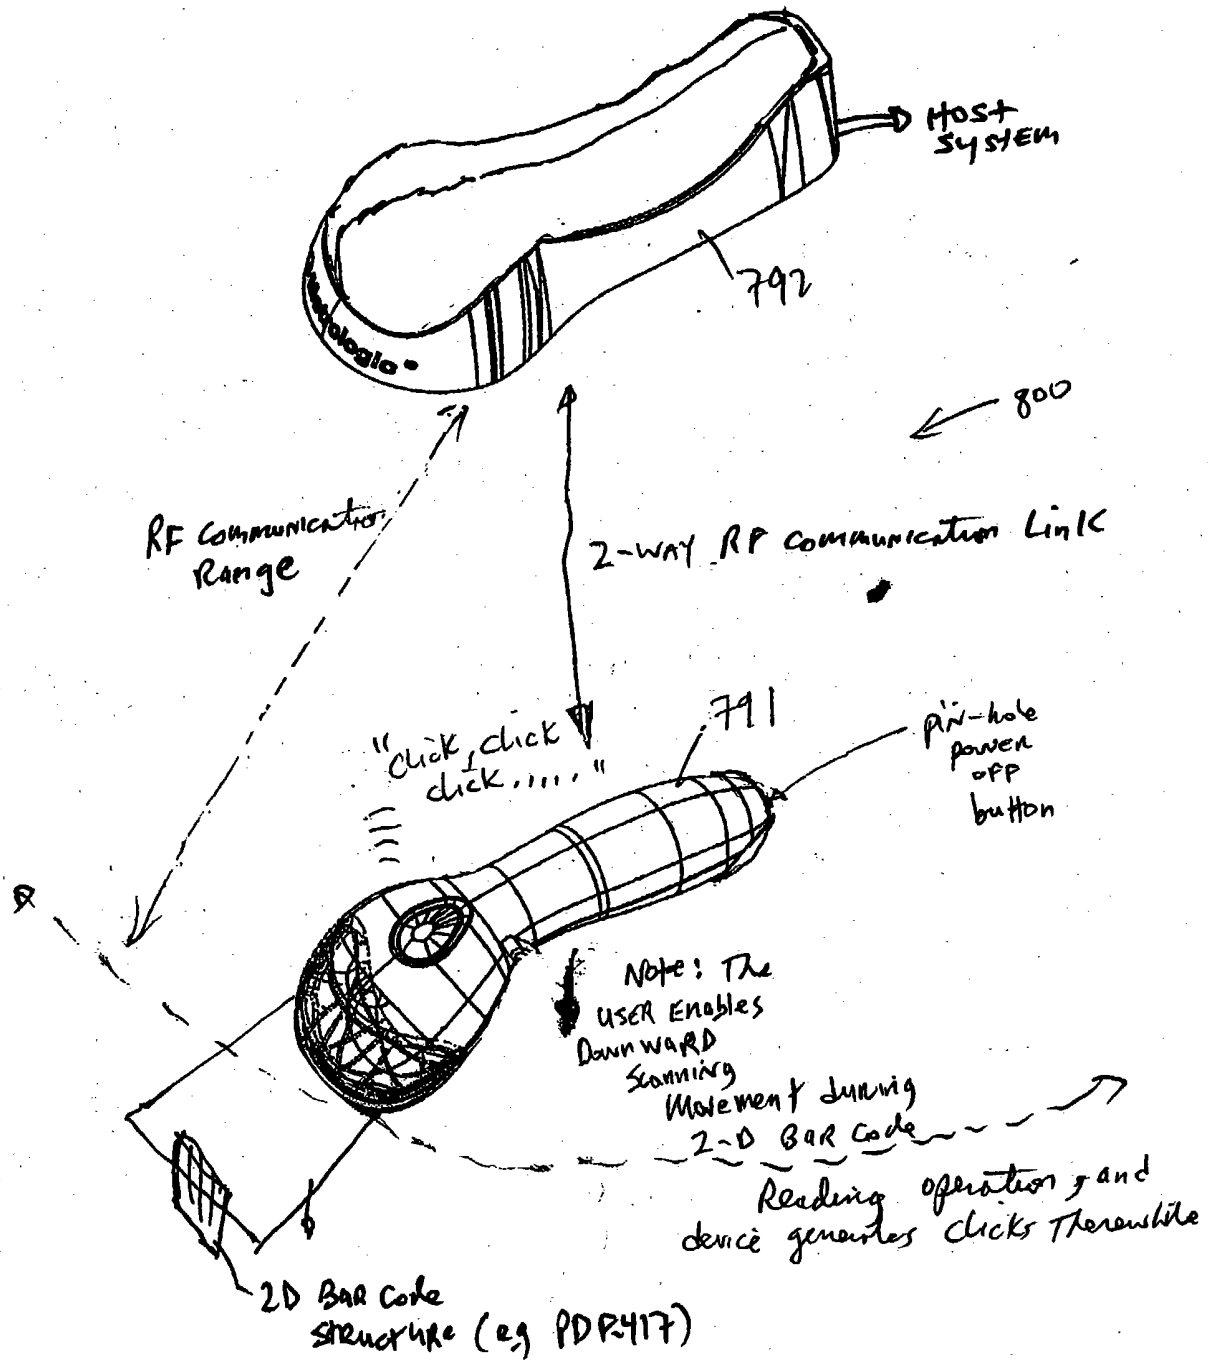 HOST
SYSTEM
792
metrologic
800
RF Communication
Range
2-WAY RF Communication Link
"Click, click
click....."
791
pin-hole
power
off
button
Note: The
USER Enables
Downward
Scanning
Movement during
2-D BAR Code
Reading operation, and
device generates clicks Therewhile
2D BAR Code
structure (eg PDF417)